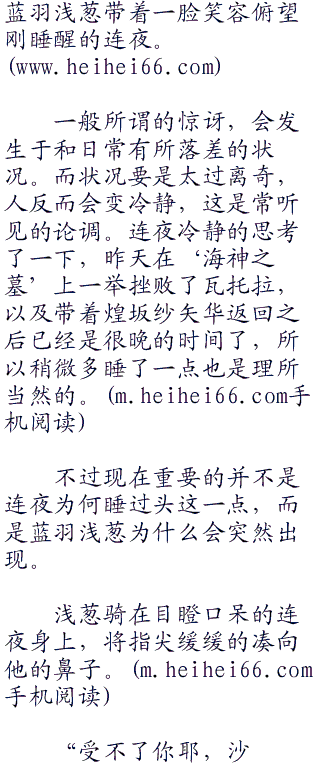 蓝羽浅葱带着一脸笑容俯望
刚睡醒的连夜。
(www.heihei66.com)
一般所谓的惊讶，会发
生于和日常有所落差的状
况。而状况要是太过离奇，
人反而会变冷静，这是常听
见的论调。连夜冷静的思考
了一下，昨天在‘海神之
墓’上一举挫败了瓦托拉，
以及带着煌坂纱矢华返回之
后已经是很晚的时间了，所
以稍微多睡了一点也是理所
当然的。(m.heihei66.com手
机阅读)
不过现在重要的并不是
连夜为何睡过头这一点，而
是蓝羽浅葱为什么会突然出
现。
浅葱骑在目瞪口呆的连
夜身上，将指尖缓缓的凑向
他的鼻子。(m.heihei66.com
手机阅读)
“受不了你耶，沙